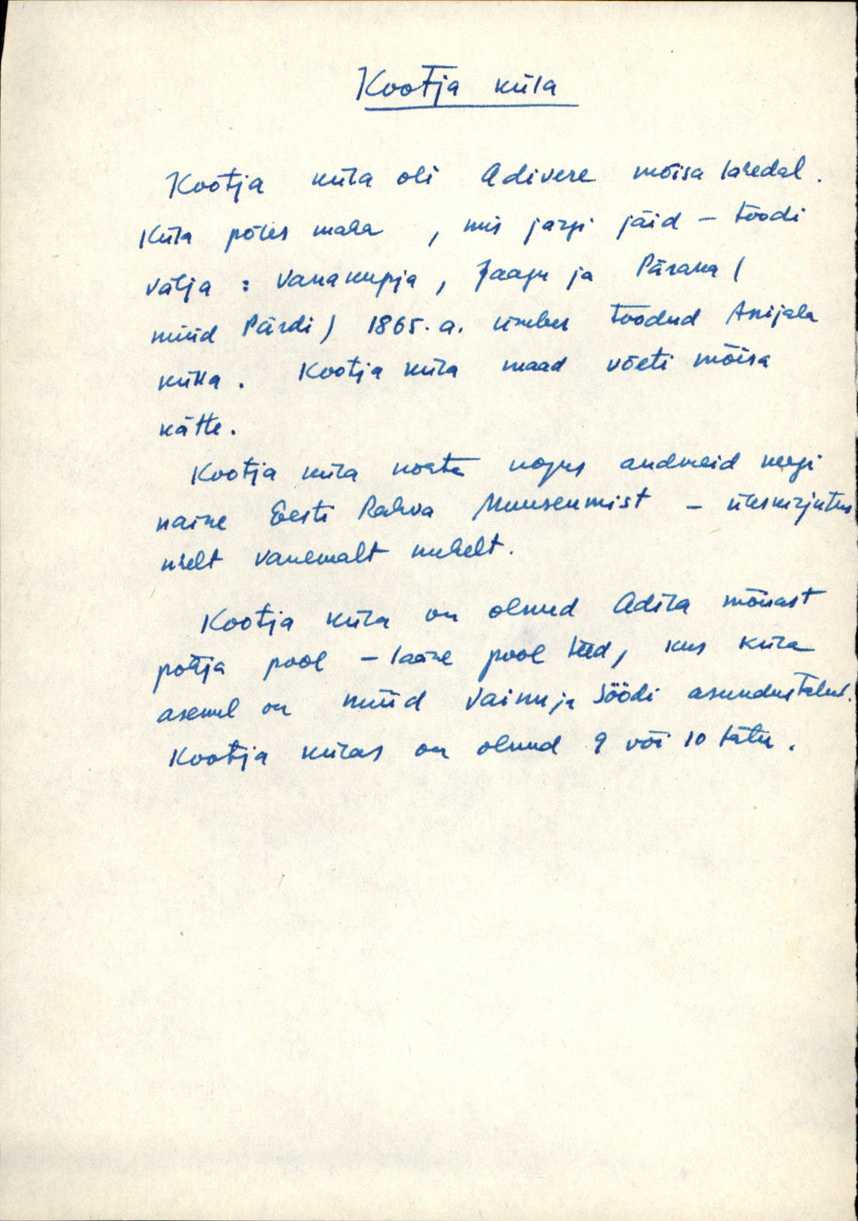 Kootja küla
Kootja küla oli Adivere mõisa lähedal.
Küla põles maha, mis järgi jäid – toodi
välja : Vanakupja, Jaagu ja Pärana (
nüüd Pärdi) 1865. a. ümber toodud Anijala
külla. Kootja küla maad võeti mõisa
kätte.
Kootja küla kohta kogus andmeid keegi
naine Eesti Rahva Muuseumist – üleskirjutus
ühelt vanemalt mehelt.
Kootja küla on olnud Adila mõisast
põhja pool – lääne pool teed, kus küla
asemel on nüüd Vainu ja Söödi asundustalud.
Kootja külas on olnud 9 või 10 talu.